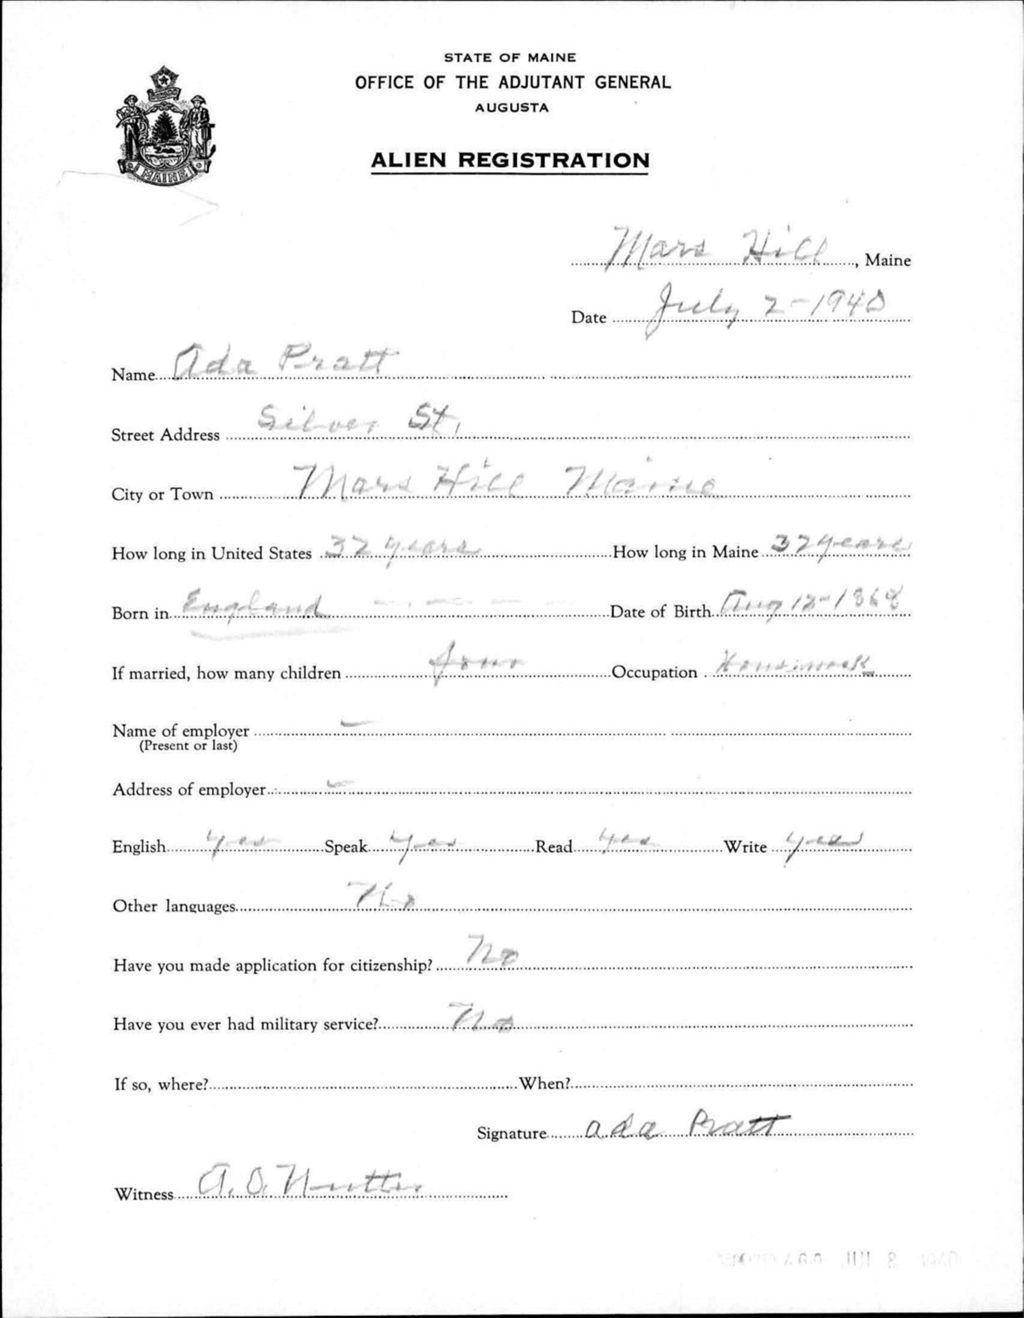 STATE OF MAINE
OFFICE OF THE ADJUTANT GENERAL
AUGUSTA
ALIEN REGISTRATION
MAINE
Mars Hill, Maine
Date July 2-1940
Name Ada Pratt
Street Address Silver St.
City or Town Mars Hill Maine
How long in United States 32 years How long in Maine 32 years
Born in England Date of Birth Aug 12-1868
If married, how many children four Occupation Housework
Name of employer -
(Present or last)
Address of employer -
English yes Speak yes Read yes Write yes
Other languages No
Have you made application for citizenship? No
Have you ever had military service? No
If so, where? When?
Signature Ada Pratt
Witness A. O. Nutter